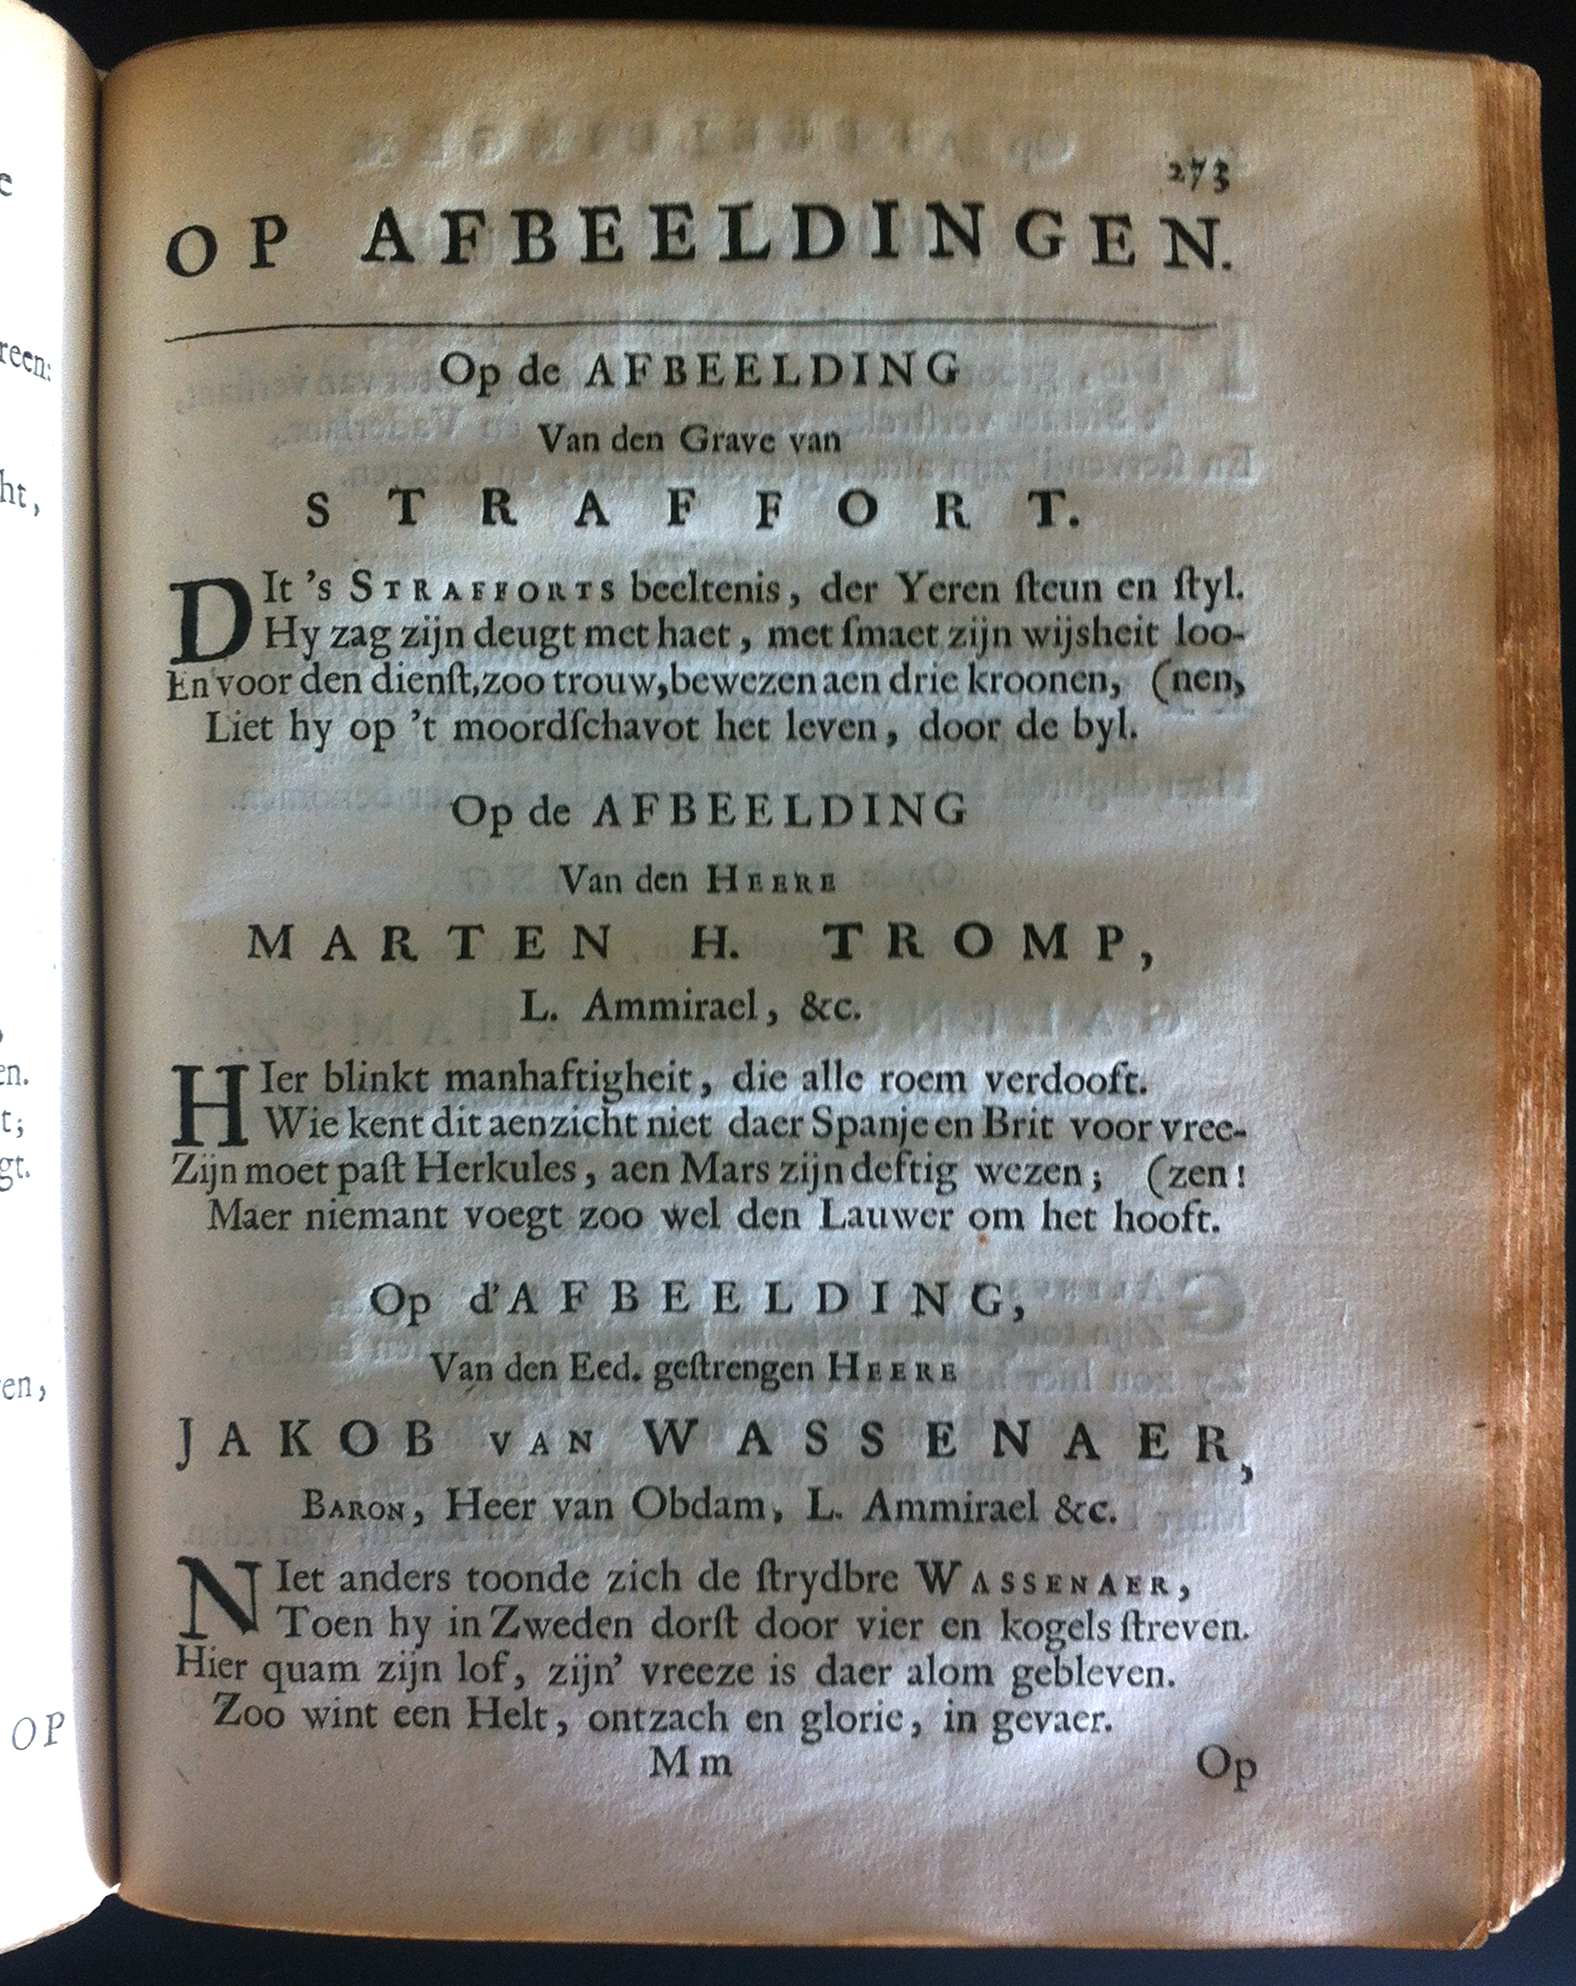 273
OP AFBEELDINGEN.
Op de AFBEELDING
Van den Grave van
STRAFFORT.
DIt 's STRAFFORTS beeltenis, der Yeren ſteun en ſtyl.
Hy zag zijn deugt met haet, met ſmaet zijn wijsheit loo-
En voor den dienſt, zoo trouw, bewezen aen drie kroonen, (nen,
Liet hy op 't moordſchavot het leven, door de byl.
Op de AFBEELDING
Van den HEERE
MARTEN H. TROMP,
L. Ammirael, &c.
HIer blinkt manhaftigheit, die alle roem verdooft.
Wie kent dit aenzicht niet daer Spanje en Brit voor vree-
Zijn moet paſt Herkules, aen Mars zijn deftig wezen; (zen!
Maer niemant voegt zoo wel den Lauwer om het hooft.
Op d'AFBEELDING,
Van den Eed. geſtrengen HEERE
JAKOB VAN WASSENAER,
BARON, Heer van Obdam, L. Ammirael &c.
NIet anders toonde zich de ſtrydbre WASSENAER,
Toen hy in Zweden dorſt door vier en kogels ſtreven.
Hier quam zijn lof, zijn' vreeze is daer alom gebleven.
Zoo wint een Helt, ontzach en glorie, in gevaer.
Mm
Op
reen:
ht,
en.
t;
gt.
en,
OP